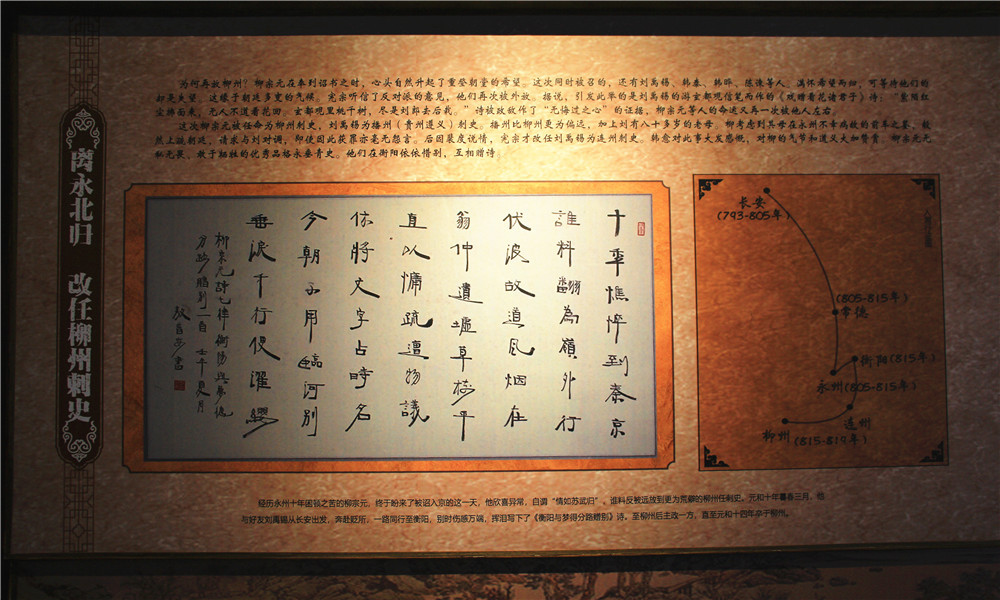 离永北归 改任柳州刺史
为何再放柳州？柳宗元在奉到诏书之时，心头自然升起了重登朝堂的希望。这次同时被召的，还有刘禹锡、韩泰、韩晔、陈谏等人。满怀希望而归，可等待他们的
却是失望。这缘于朝廷多变的气候。宪宗听信了反对派的意见，他们再次被外放。据说，引发此举的是刘禹锡的游玄都观信笔而作的《戏赠看花诸君子》诗：“紫陌红
尘拂面来，无人不道看花回。玄都观里桃千树，尽是刘郎去后栽。”诗被政敌作了“无悔过之心”的证据，柳宗元等人的命运又再一次被他人左右。
这次柳宗元被任命为柳州刺史，刘禹锡为播州（贵州遵义）刺史。播州比柳州更为偏远，加上刘有八十多岁的老母，柳考虑到其母在永州不幸病故的前车之鉴，毅
然上疏朝廷，请求与刘对调，即使因此获罪亦毫无怨言。后因裴度说情，宪宗才改任刘禹锡为连州刺史。韩愈对此事大发感慨，对柳的气节和道义大加赞赏。柳宗元无
私无畏、敢于牺牲的优秀品格永垂青史。他们在衡阳依依惜别，互相赠诗。
十年憔悴到秦京
谁料翻為嶺外行
伏波故道风烟在
翁仲遺墟草樹平
直以慵疏遭物議
休將文字占時名
今朝不用臨河别
垂淚千行便濯纓
柳宗元詩七律衡陽與夢得
分路贈别一首 壬午夏月
長安
(793-805年)
(805-815年)
常德
衡阳(815年)
永州(805-815年)
连州
柳州 (815-819年)
经历永州十年困顿之苦的柳宗元，终于盼来了被诏入京的这一天，他欣喜异常，自谓“情如苏武归”。谁料反被远放到更为荒僻的柳州任刺史。元和十年暮春三月，他
与好友刘禹锡从长安出发，奔赴贬所，一路同行至衡阳，别时伤感万端，挥泪写下了《衡阳与梦得分路赠别》诗。至柳州后主政一方，直至元和十四年卒于柳州。